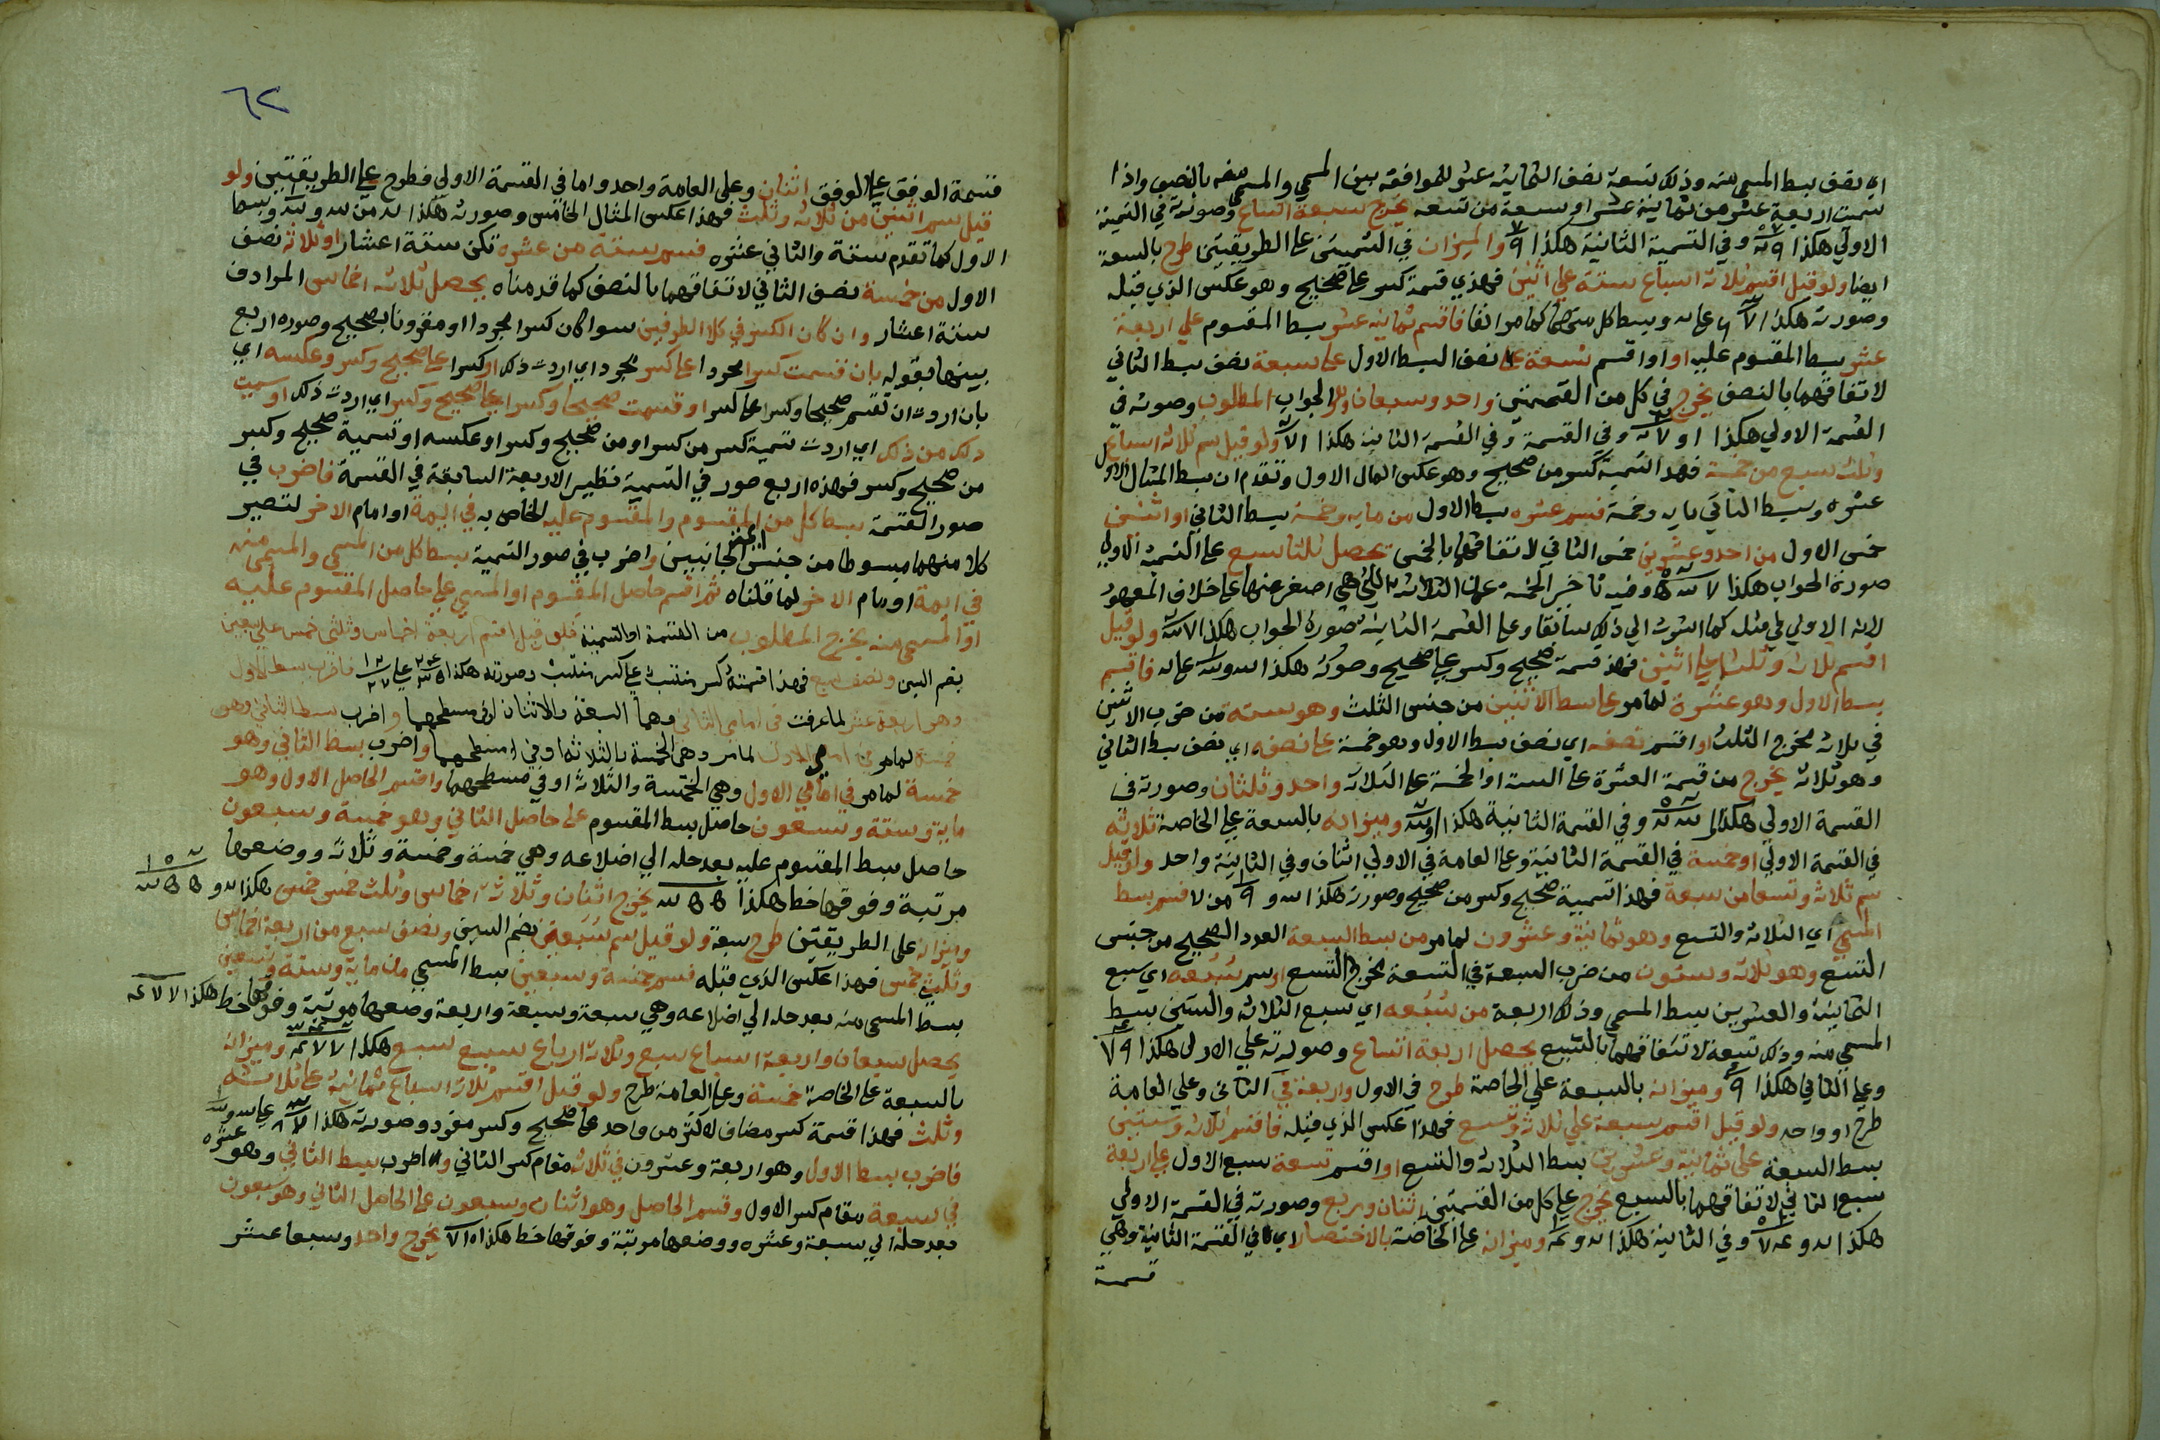 اي نصف بسط المسمي منه وذلك تسعة نصف الثمانية عشر للموافقة بين المسمي والمسمي منه بالنصف واذا
سميت اربعة عشر من ثمانية عشر او سبعة من تسعه يخرج سبعة اتساع وصورته في التسمية
الاولي هكذا وفي التسمية الثانية هكذا والميزان في التسميتين علي الطريقتين طرح بالسبعة
ايضا ولو قيل اقسم ثلاثة اسباع ستة علي اثنين فهذي قسمة كسر علي صحيح وهو عكس الذي قبله
وصورته هكذا وبسط كل منهما كما مر انفا فاقسم ثمانية عشر بسط المقسوم علي اربعة
عشر بسط المقسوم عليه او اقسم تسعة نصف البسط الاول علي سبعة نصف بسط الثاني
لاتفاقهما بالنصف يخرج في كل من القسمتين واحد وسبعان وهو الجواب المطلوب وصورته في
القسمة الاولي هكذا وفي القسمة الثانية هكذا ولو قيل سم ثلاثة اسباع
وثلث سبع من خمسة فهذا تسمية كسر من صحيح وهو عكس المال الاول وتقدم ان بسط المثال الاول
عشره وبسط الثاني مايه وخمسة فسم عشره بسط الاول من مايه وخمسة بسط الثاني او اثنين
خمس الاول من احد وعشرين خمس الثاني لاتفاقهما بالخمس تحصل ثلثا سبع علي التسمية الاولي
صورة الجواب هكذا وفيه تاخير الخمسة عن الثلاثة التي هي اصغر منها علي خلاف المعهود
لان الاولي في مثله كما اشرت الي ذلك سابقا وعلي القسمة الثانية صورة الجواب هكذا ولو قيل
اقسم ثلاثة وثلثا علي اثنين فهذه قسمة صحيح وكسر علي صحيح وصورته هكذا فاقسم
بسط الاول وهو عشرة لما مر علي بسط الاثنين من جنس الثلث وهو ستة من ضرب الاثنين
في ثلاثة مخرج الثلث او اقسم نصفه اي نصف بسط الاول وهو خمسة علي نصفه اي نصف بسط الثاني
وهو ثلاثة يخرج من قسمة العشرة علي الستة او الخمسة علي الثلاثة واحد وثلثان وصورته في
القسمة الاولي هكذا وفي القسمة الثانية هكذا وميزانه بالسبعة علي الخاصة ثلاثة
في القسمة الاولي او خمسة في القسمة الثانية وعلي العامة في الاولي اثنان وفي الثانية واحد ولو قيل
سم ثلاثة وتسعا من سبعة فهذا تسمية صحيح وكسر من صحيح وصورته هكذا فسم بسط
المسمي اي الثلاثة والتسع وهو ثمانية وعشرون لما مر من بسط السبعة العدد الصحيح من جنس
التسع وهو ثلاثة وستون من ضرب السبعة في التسعة مخرج التسع او سم سُبُعه اي سبع
الثمانية والعشرين بسط المسمي وذلك اربعة من سُبُعه اي سبع الثلاثة والستين بسط
المسمي منه وذلك تسعة لاتفاقهما بالسبع يحصل اربعة اتساع وصورته علي الاول هكذا
وعلي الثاني هكذا وميزانه بالسبعة علي الخاصة طرح في الاول واربعة في الثاني وعلي العامة
طرح او واحد ولو قيل اقسم سبعة علي ثلاثة وتسع فهذا عكس الذي قبله فاقسم ثلاثة وستين
بسط السبعة علي ثمانية وعشرين بسط الثلاثة والتسع او اقسم تسعة سبع الاول علي اربعة
سبع الثاني لاتفاقهما بالسبع يخرج علي كل من القسمتين اثنان وربع وصورته في القسمة الاولي
هكذا وفي الثانية هكذا وميزانه علي الخاصة بالاختصار اي في القسمة الثانية وهي
قسمة
٦٢
قسمة الوفق علي الوفق اثنان وعلي العامة واحد واما في القسمة الاولي فطرح علي الطريقتين ولو
قيل سم اثنين من ثلاثة وثلث فهذا عكس المثال الخامس وصورته هكذا وبسط
الاول كما تقدم ستة والثاني عشره فسم ستة من عشره تكن ستة اعشار او ثلاثة نصف
الاول من خمسة نصف الثاني لاتفاقهما بالنصف كما قدمناه يحصل ثلاثة اخماس المرادف
ستة اعشار وان كان الكسر في كلا الطرفين سوا كان كسرا مجردا او مقرونا بصحيح وصوره اربع
بينها بقوله بان قسمت كسرا مجردا علي كسر مجرد اي اردت ذلك او كسرا علي صحيح وكسر وعكسه اي
بان اردت ان تقسم صحيحا وكسرا علي كسر او قسمت صحيحا وكسرا علي صحيح وكسر اي اردت ذلك او سميت
ذلك من ذلك اي اردت تسمية كسر من كسر او من صحيح وكسر او عكسه او تسمية صحيح وكسر
من صحيح وكسر فهذه اربع صور في التسمية نظير الاربعة السابقة في القسمة فاضرب في
صور القسمة بسط كل من المقسوم والمقسوم عليه الخاص به في ايمة او امام الاخر لتصير
كلا منهما مبسوطا من جنس الجانبين واضرب في صور التسمية بسط كل من المسمي والمسمي منه
في ايمة او امام الاخر لما قلناه ثم اقسم حاصل المقسوم او المسمي علي حاصل المقسوم عليه
او المسمي منه يخرج المطلوب من القسمة او التسمية فلو قيل اقسم اربعة اخماس وثلثي خمس علي سبعين
بضم السين ونصف سبع فهذا قسمة كسر منتسب علي كسر منتسب وصورته هكذا فاضرب بسط الاول
وهو اربعة عشر لما عرفت في امامي الثاني وهما السبعة والاثنان او في مسطحهما واضرب بسط الثاني وهو
خمسة لما مر في امامي الاول لما مر وهي الخمسة بالثلاثة او في مسطحهما واضرب بسط الثاني وهو
خمسة لما مر في امامي الاول وهي الخمسة والثلاثة او في مسطحهما واقسم الحاصل الاول وهو
ماية وستة وتسعون حاصل بسط المقسوم علي حاصل الثاني وهو خمسة وسبعون
حاصل بسط المقسوم عليه بعد حله الي اضلاعه وهي خمسة وخمسة وثلاثة ووضعها
مرتبة وفوقها خط هكذا يخرج اثنان وثلاثة اخماس وثلث خمس خمس هكذا
وميزانه علي الطريقتين طرح سبعة ولو قيل سم سُبعين بضم السين ونصف سبع من اربعة اخماس
وثلثي خمس فهذا عكس الذي قبله فسم خمسة وسبعين بسط المسمي من ماية وستة وتسعين
بسط المسمي منه بعد حله الي اضلاعه وهي سبعة وسبعة واربعة وضعها مرتبة وفوقها خط هكذا
يحصل سبعان واربعة اسباع سبع وثلاثة ارباع سبع سبع هكذا وميزانه
بالسبعة علي الخاصة خمسة وعلي العامة طرح ولو قيل اقسم ثلاثة اسباع ثمانية علي ثلاثة
وثلث فهذا قسمة كسر مضاف لاكثر من واحد علي صحيح وكسر مفرد وصورته هكذا
فاضرب بسط الاول وهو اربعة وعشرون في ثلاثة مقام كسر الثاني واضرب بسط الثاني وهو عشره
في سبعة مقام كسر الاول وقسم الحاصل وهو اثنان وسبعون علي الحاصل الثاني وهو سبعون
بعد حله الي سبعة وعشره ووضعها مرتبة وفوقها خط هكذا يخرج واحد وسبعا عشر